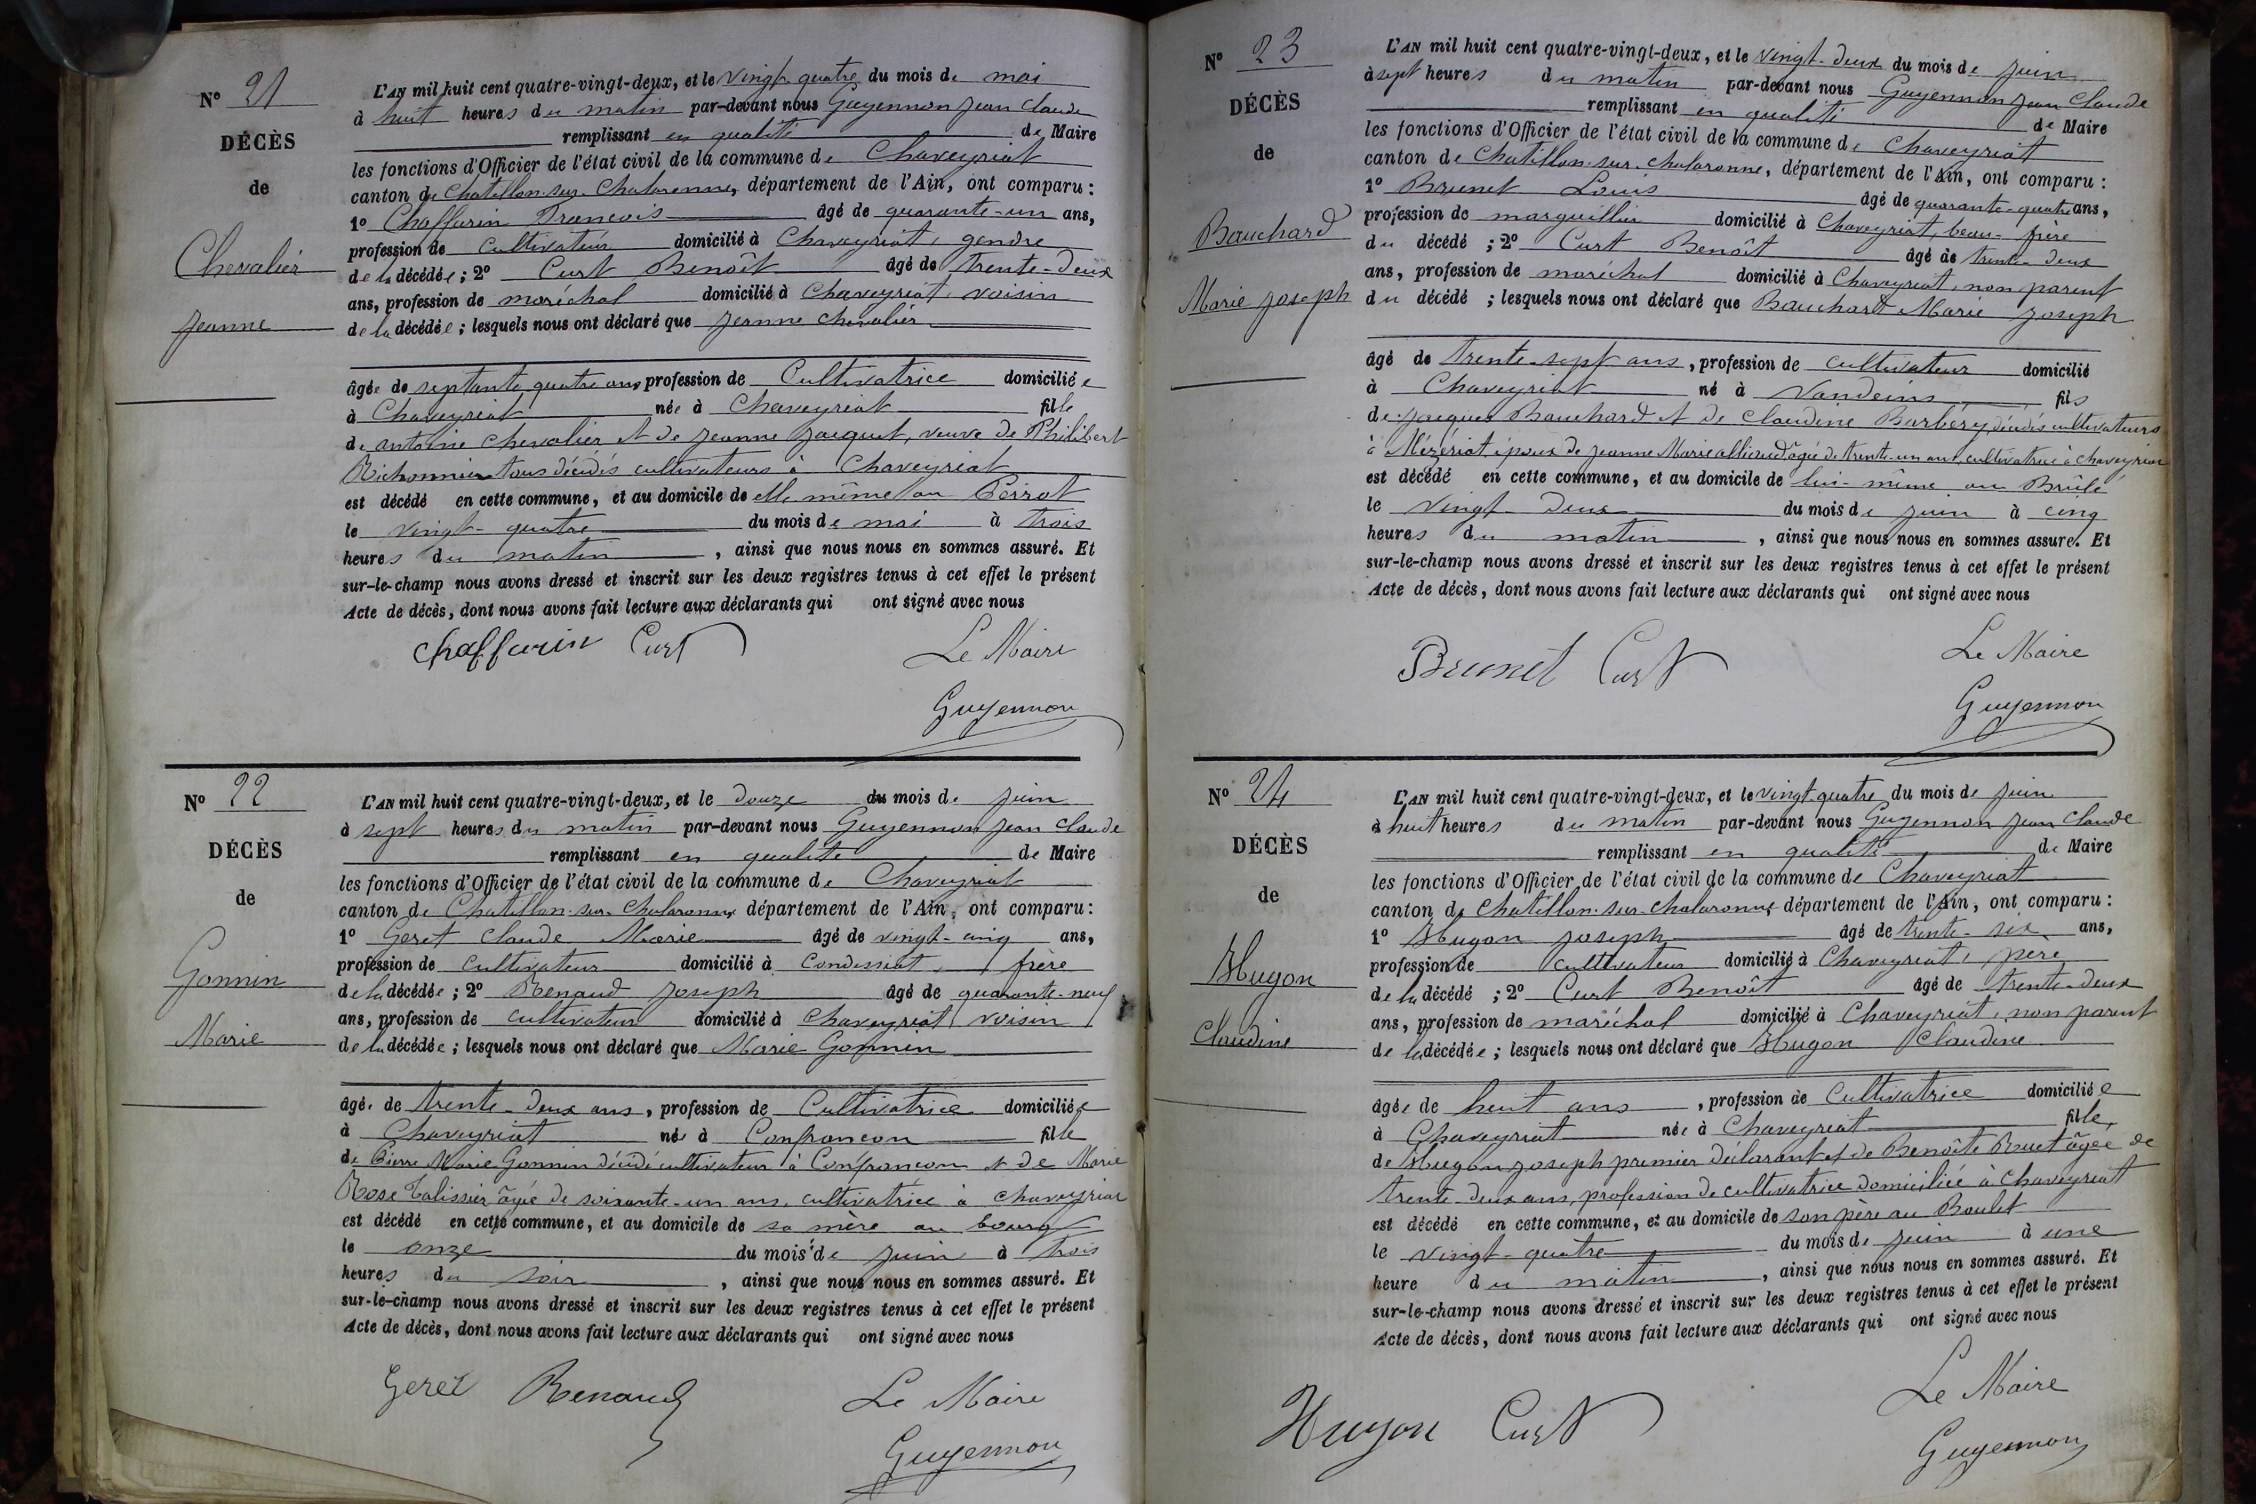 Nº 21
DÉCÈS
de
Chevalier
Jeanne
L'AN mil huit cent quatre-vingt-deux, et le vingt-quatre du mois de mai
à huit heures du matin par-devant nous Guyennon Jean Claude
remplissant en qualité de Maire
les fonctions d'Officier de l'état civil de la commune de Chaveyriat
canton de Chatillon-sur-Chalaronne, département de l'Ain, ont comparu :
1º Chaffurin François âgé de quarante-un ans,
profession de cultivateur domicilié à Chaveyriat, gendre
de la décédée ; 2º Curt Benoît âgé de trente-deux
ans, profession de maréchal domicilié à Chaveyriat, voisin
de la décédée ; lesquels nous ont déclaré que Jeanne Chevalier
âgée de septante quatre ans, profession de Cultivatrice domiciliée
à Chaveyriat née à Chaveyriat fille
de antoine Chevalier et de Jeanne Jacquet, veuve de Philibert
Richonnier tous décédés cultivateurs à Chaveyriat
est décédé en cette commune, et au domicile de elle même au Perrat
le vingt-quatre du mois de mai à trois
heures du matin, ainsi que nous nous en sommes assuré. Et
sur-le-champ nous avons dressé et inscrit sur les deux registres tenus à cet effet le présent
Acte de décès, dont nous avons fait lecture aux déclarants qui ont signé avec nous
Chaffurin Curt Le Maire
Guyennon
Nº 22
DÉCÈS
de
Gonnin
Marie
L'AN mil huit cent quatre-vingt-deux, et le douze du mois de juin
à sept heures du matin par-devant nous Guyennon Jean Claude
remplissant en qualité de Maire
les fonctions d'Officier de l'état civil de la commune de Chaveyriat
canton de Chatillon-sur-Chalaronne, département de l'Ain, ont comparu :
1º Geret Claude Marie âgé de vingt-cinq ans,
profession de cultivateur domicilié à Condessiat, frère
de la décédée ; 2º Renaud Joseph âgé de quarante-neuf
ans, profession de cultivateur domicilié à Chaveyriat, voisin
de la décédée ; lesquels nous ont déclaré que Marie Gonnin
âgée de trente-deux ans, profession de Cultivatrice domiciliée
à Chaveyriat née à Confrancon fille
de Pierre Marie Gonnin décédé cultivateur à Confrancon et de Marie
Rose Talissier âgée de soixante-un ans, cultivatrice à Chaveyriat
est décédé en cette commune, et au domicile de sa mère au bourg
le onze du mois de juin à trois
heures du soir, ainsi que nous nous en sommes assuré. Et
sur-le-champ nous avons dressé et inscrit sur les deux registres tenus à cet effet le présent
Acte de décès, dont nous avons fait lecture aux déclarants qui ont signé avec nous
Geret Renaud Le Maire
Guyennon
Nº 23
DÉCÈS
de
Bauchard
Marie Joseph
L'AN mil huit cent quatre-vingt-deux, et le vingt-deux du mois de juin
à sept heures du matin par-devant nous Guyennon Jean Claude
remplissant en qualité de Maire
les fonctions d'Officier de l'état civil de la commune de Chaveyriat
canton de Chatillon-sur-Chalaronne, département de l'Ain, ont comparu :
1º Brunet Louis âgé de quarante-quatre ans,
profession de marguillier domicilié à Chaveyriat, beau-frère
du décédé ; 2º Curt Benoît âgé de trente-deux
ans, profession de maréchal domicilié à Chaveyriat, non parent
du décédé ; lesquels nous ont déclaré que Bauchard Marie Joseph
âgé de trente-sept ans, profession de cultivateur domicilié
à Chaveyriat né à Vandeins fils
de Jacques Bauchard et de Claudine Barbéry, décédés cultivateurs
à Mézériat, époux de Jeanne Marie alliaud âgée de trente-un ans, cultivatrice à Chaveyriat
est décédé en cette commune, et au domicile de lui-même au Brûlé
le vingt-deux du mois de juin à cinq
heures du matin, ainsi que nous nous en sommes assuré. Et
sur-le-champ nous avons dressé et inscrit sur les deux registres tenus à cet effet le présent
Acte de décès, dont nous avons fait lecture aux déclarants qui ont signé avec nous
Brunet Curt Le Maire
Guyennon
Nº 24
DÉCÈS
de
Hugon
Claudine
L'AN mil huit cent quatre-vingt-deux, et le vingt-quatre du mois de juin
à huit heures du matin par-devant nous Guyennon Jean Claude
remplissant en qualité de Maire
les fonctions d'Officier de l'état civil de la commune de Chaveyriat
canton de Chatillon-sur-Chalaronne, département de l'Ain, ont comparu :
1º Hugon Joseph âgé de trente-six ans,
profession de cultivateur domicilié à Chaveyriat, père
de la décédé ; 2º Curt Benoît âgé de trente-deux
ans, profession de maréchal domicilié à Chaveyriat, non parent
de la décédée ; lesquels nous ont déclaré que Hugon Claudine
âgée de huit ans, profession de Cultivatrice domiciliée
à Chaveyriat née à Chaveyriat fille
de Hugon Joseph premier déclarant et de Benoîte Buet âgée de
trente-deux ans, profession de cultivatrice domiciliée à Chaveyriat
est décédé en cette commune, et au domicile de son père au Boulet
le vingt-quatre du mois de juin à une
heure du matin, ainsi que nous nous en sommes assuré. Et
sur-le-champ nous avons dressé et inscrit sur les deux registres tenus à cet effet le présent
Acte de décès, dont nous avons fait lecture aux déclarants qui ont signé avec nous
Hugon Curt Le Maire
Guyennon